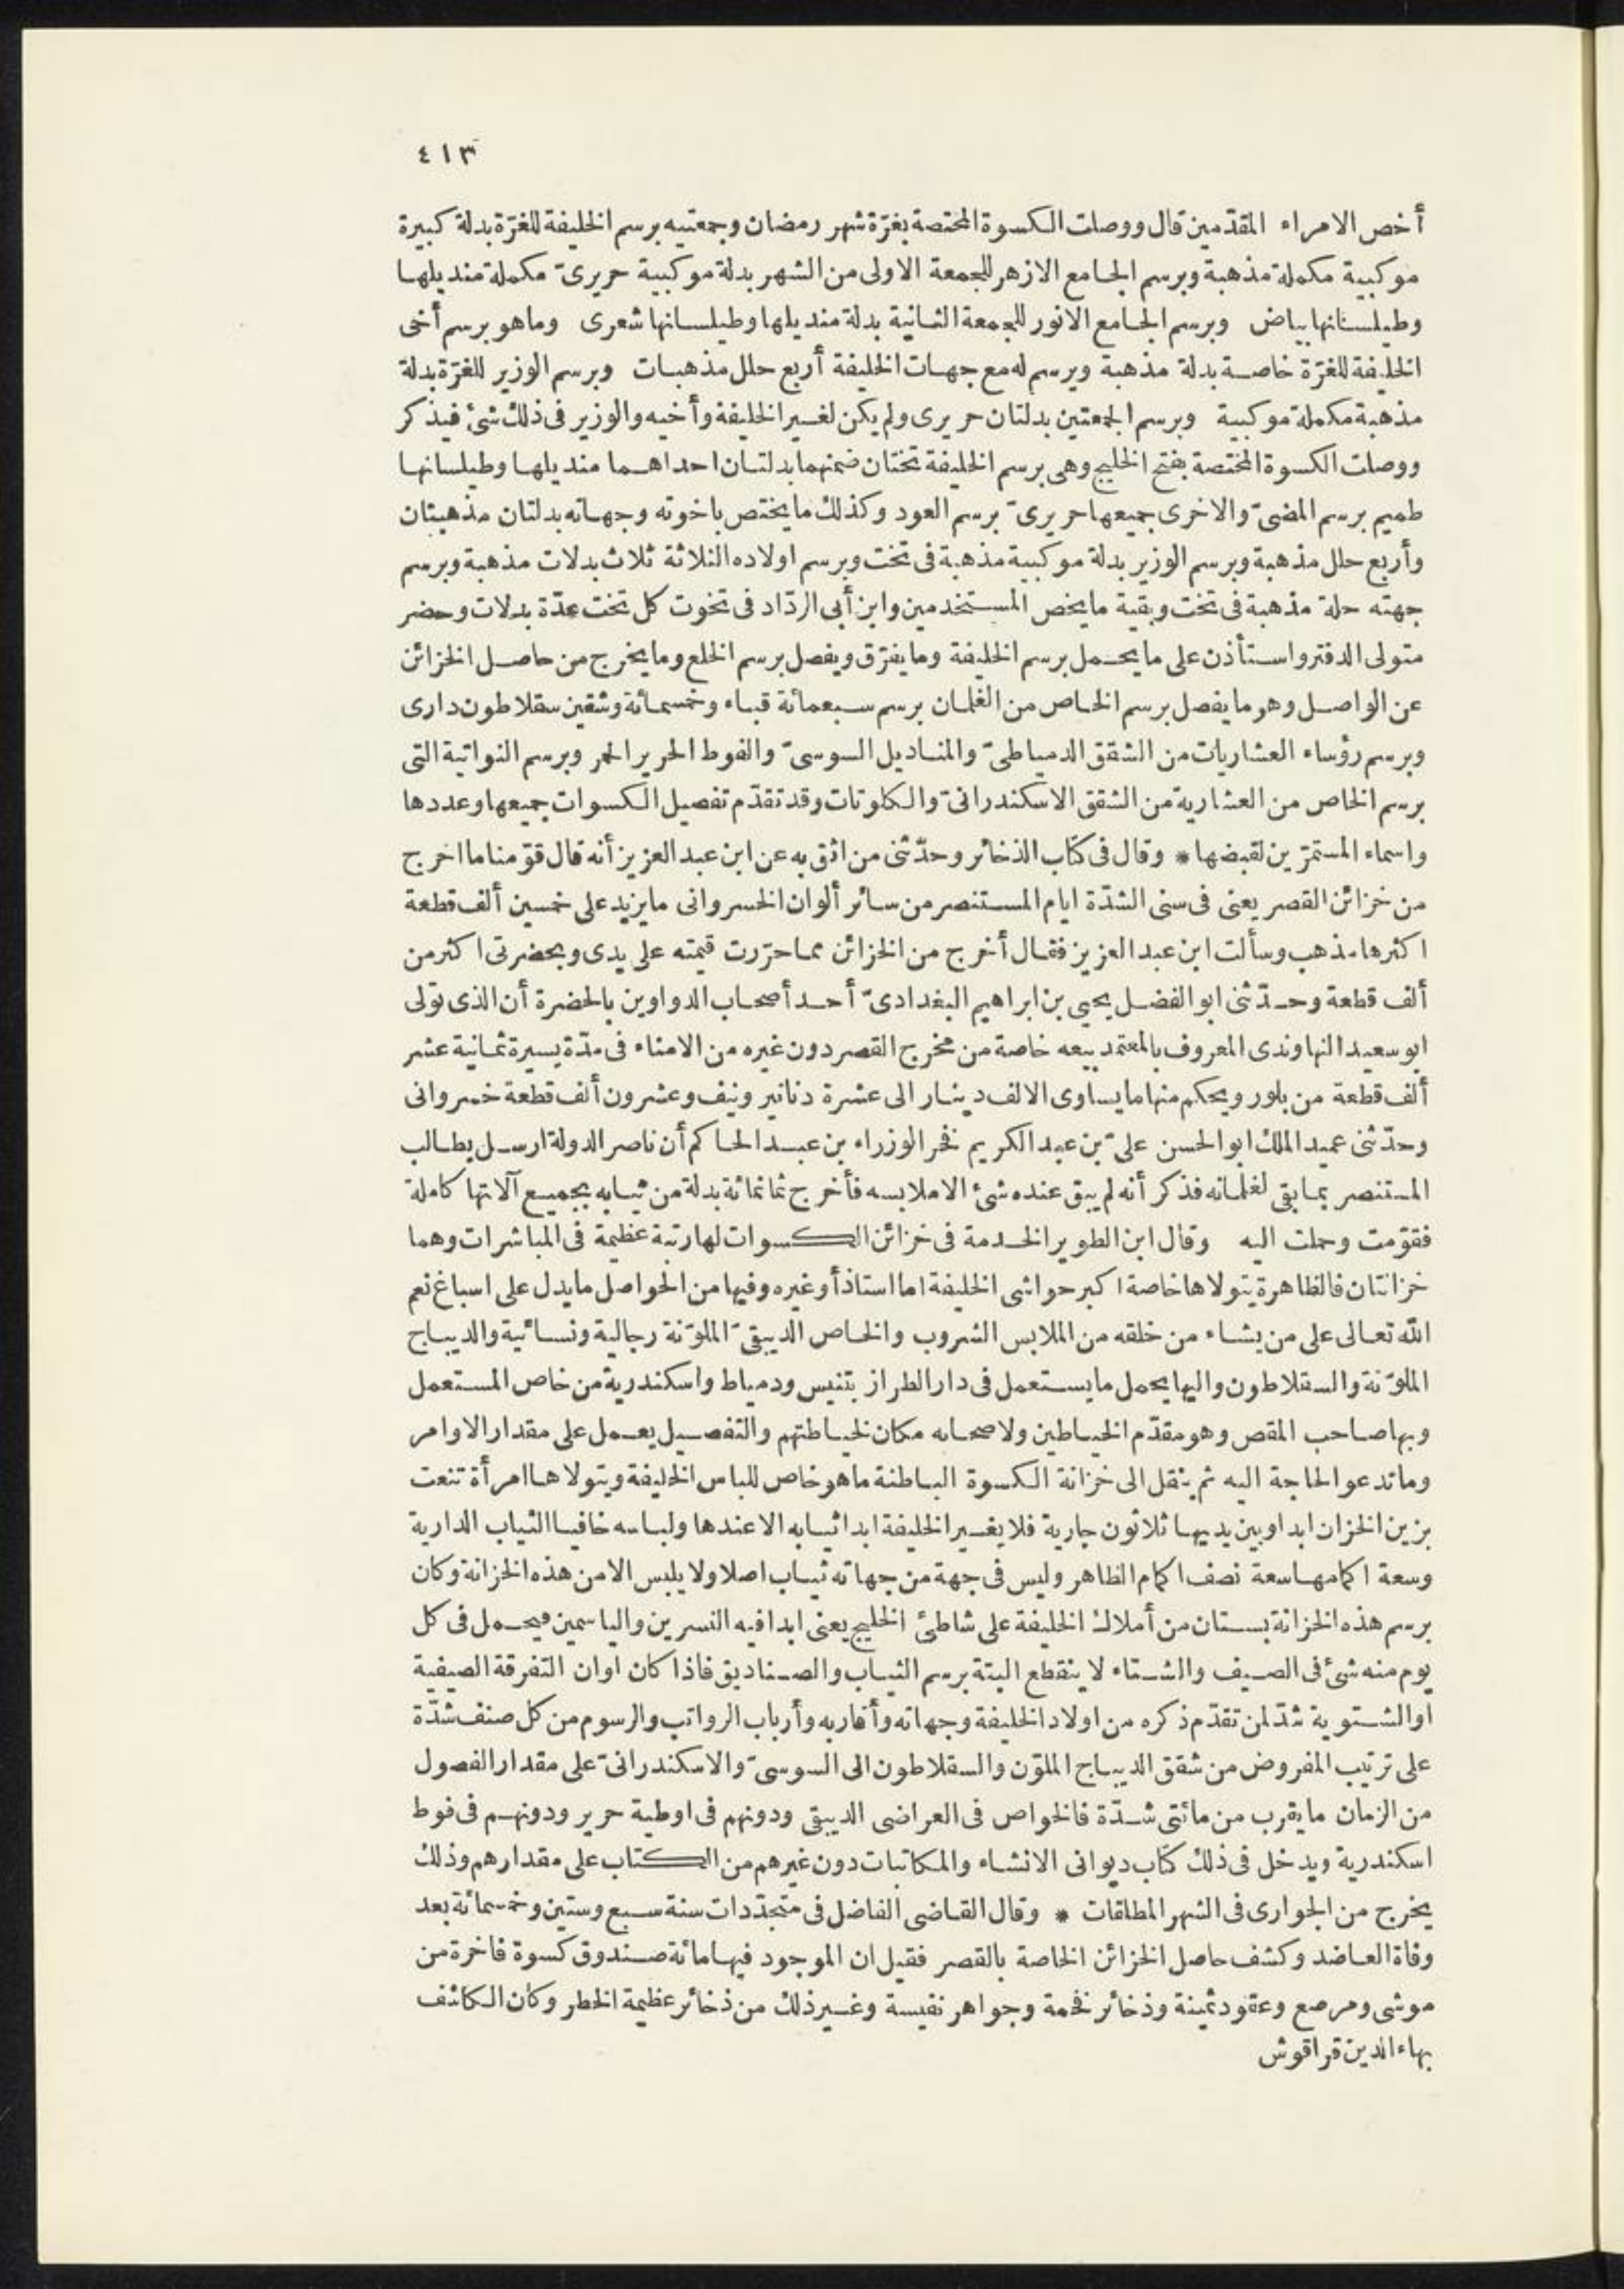 ٤١٣
أخص الامراء المقدّمين قال ووصلت الكسوة المختصة بغرّة شهر رمضان وجمعتيه برسم الخليفة للغرّة بدلة كبيرة
موكبية مكملة مذهبة وبرسم الجامع الازهر للجمعة الاولى من الشهر بدلة موكبية حريرىّ مكملة منديلها
وطيلسانها بياض وبرسم الجامع الانور للجمعة الثانية بدلة منديلها وطيلسانها شعرى وما هو برسم أخى
الخليفة للغرّة خاصة بدلة مذهبة وبرسم له مع جهات الخليفة أربع حلل مذهبات وبرسم الوزير للغرّة بدلة
مذهبة مكملة موكبية وبرسم الجمعتين بدلتان حريرى ولم يكن لغير الخليفة وأخيه والوزير فى ذلك شئ فيذكر
ووصلت الكسوة المختصة بفتح الخليج وهى برسم الخليفة تختان ضمنهما بدلتان احداهما منديلها وطيلسانها
طميم برسم المضىّ والاخرى جميعها حريرىّ برسم العود وكذلك ما يختص باخوته وجهاته بدلتان مذهبتان
وأربع حلل مذهبة وبرسم الوزير بدلة موكبية مذهبة فى تخت وبرسم اولاده الثلاثة ثلاث بدلات مذهبة وبرسم
جهته حلة مذهبة فى تخت وبقية ما يخص المستخدمين وابن أبى الردّاد فى تخوت كل تخت عدّة بدلات وحضر
متولى الدفتر واستأذن على ما يحمل برسم الخليفة وما يفرّق ويفصل برسم الخلع وما يخرج من حاصل الخزائن
عن الواصل وهو ما يفصل برسم الخاص من الغلمان برسم سبعمائة قباء وخمسمائة وشقين سقلاطون دارى
وبرسم رؤساء العشاريات من الشقق الدمياطىّ والمناديل السوسىّ والفوط الحرير الحمر وبرسم النواتية التى
برسم الخاص من العشارية من الشقق الاسكندرانىّ والكلوتات وقد تقدّم تفصيل الكسوات جميعها وعددها
واسماء المستمرّين لقبضها * وقال فى كتاب الذخائر وحدّثنى من اثق به عن ابن عبد العزيز أنه قال قوّمنا ما اخرج
من خزائن القصر يعنى فى سنى الشدّة ايام المستنصر من سائر ألوان الخسروانى ما يزيد على خمسين ألف قطعة
اكثرها مذهب وسألت ابن عبد العزيز فقال أخرج من الخزائن مما حرّرت قيمته على يدى وبحضرتى اكثر من
ألف قطعة وحدّثنى ابو الفضل يحيى بن ابراهيم البغدادىّ أحد أصحاب الدواوين بالحضرة أن الذى تولى
ابو سعيد النهاوندى المعروف بالمعتمد بيعه خاصة من مخرج القصر دون غيره من الامناء فى مدّة يسيرة ثمانية عشر
ألف قطعة من بلور ومحكم منها ما يساوى الالف دينار الى عشرة دنانير ونيف وعشرون ألف قطعة خسروانى
وحدّثنى عميد الملك ابو الحسن علىّ بن عبد الكريم فخر الوزراء بن عبد الحاكم أن ناصر الدولة ارسل يطالب
المستنصر بما بقى لغلمانه فذكر أنه لم يبق عنده شئ الا ملابسه فأخرج ثمانمائة بدلة من ثيابه بجميع آلاتها كاملة
فقوّمت وحملت اليه وقال ابن الطوير الخدمة فى خزائن الكسوات لها رتبة عظيمة فى المباشرات وهما
خزانتان فالظاهرة يتولاها خاصة اكبر حواشى الخليفة اما استاذ أو غيره وفيها من الحواصل ما يدل على اسباغ نعم
الله تعالى على من يشاء من خلقه من الملابس الشروب والخاص الدبيقىّ الملوّنة رجالية ونسائية والديباج
الملوّنة والسقلاطون واليها يحمل ما يستعمل فى دار الطراز بتنيس ودمياط واسكندرية من خاص المستعمل
وبها صاحب المقص وهو مقدّم الخياطين ولاصحابه مكان لخياطتهم والتفصيل يعمل على مقدار الاوامر
وما تدعو الحاجة اليه ثم ينقل الى خزانة الكسوة الباطنة ما هو خاص للباس الخليفة ويتولاها امرأة تنعت
بزين الخزان ابدا وبين يديها ثلاثون جارية فلا يغير الخليفة ابدا ثيابه الا عندها ولباسه خافيا الثياب الدارية
وسعة اكمامها سعة نصف اكمام الظاهر وليس فى جهة من جهاته ثياب اصلا ولا يلبس الا من هذه الخزانة وكان
برسم هذه الخزانة بستان من أملاك الخليفة على شاطئ الخليج يعنى ابدا فيه النسرين والياسمين فيحمل فى كل
يوم منه شئ فى الصيف والشتاء لا ينقطع البتة برسم الثياب والصناديق فاذا كان اوان التفرقة الصيفية
او الشتوية شدّ لمن تقدّم ذكره من اولاد الخليفة وجهاته وأقاربه وأرباب الرواتب والرسوم من كل صنف شدّة
على ترتيب المفروض من شقق الديباج الملوّن والسقلاطون الى السوسىّ والاسكندرانىّ على مقدار الفصول
من الزمان ما يقرب من مائتى شدّة فالخواص فى العراضى الدبيقى ودونهم فى اوطية حرير ودونهم فى فوط
اسكندرية ويدخل فى ذلك كتاب ديوانى الانشاء والمكاتبات دون غيرهم من الكتاب على مقدارهم وذلك
يخرج من الجوارى فى الشهر المطلقات * وقال القاضى الفاضل فى متجدّدات سنة سبع وستين وخمسمائة بعد
وفاة العاضد وكشف حاصل الخزائن الخاصة بالقصر فقيل ان الموجود فيها مائة صندوق كسوة فاخرة من
موشى ومرصع وعقود ثمينة وذخائر فخمة وجواهر نفيسة وغير ذلك من ذخائر عظيمة الخطر وكان الكاشف
بهاء الدين قراقوش